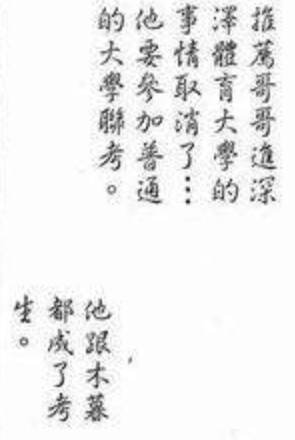 推薦哥哥進深
澤體育大學的
事情取消了…
他要參加普通
的大學聯考。
他跟木暮
都成了考
生。